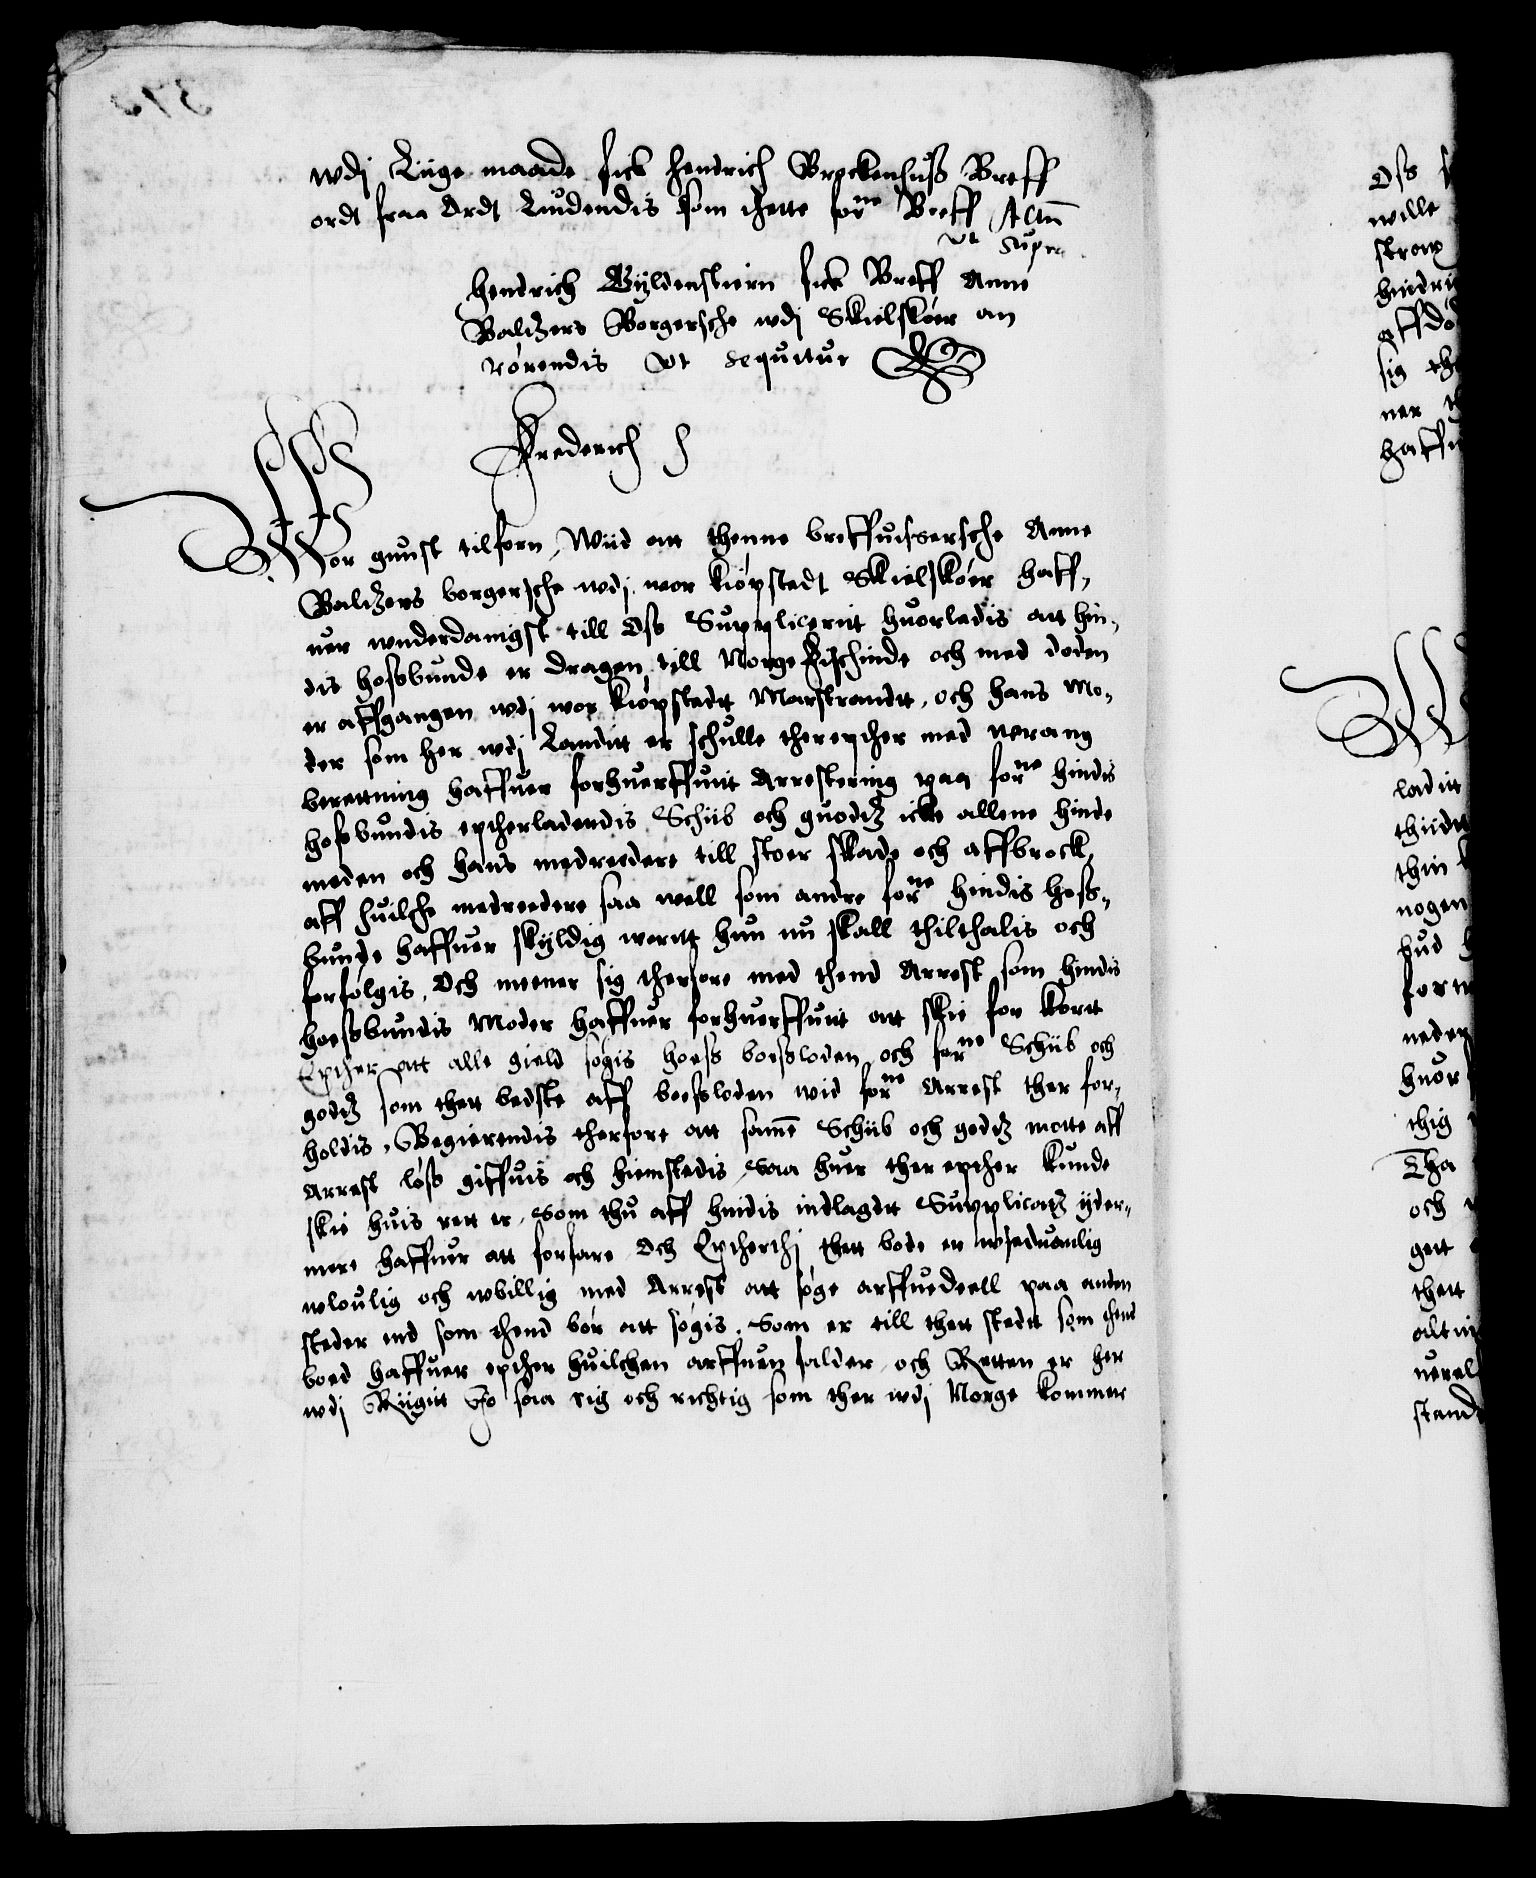 wdj Liige maade fick Hendrich Brockenhuß Breff
ordt fraa Ordt Liudendis som thette forne Breff Actum
vt supra
Hendrich Gyldenstiern fick Breff Anne
Baltzers Borgersche wdj Skielskøer an
rørendis vt sequitur
Frederich
Wor gunst tilforn, Wiid att thenne breffuissersche Anne
Baltzers borgersche wdj wor kiøpstedt Skielskøer haff,
uer wnderdanigst till Oss Suppplicerit huorledis att hin,
dis hosbunde er dragen till Norge Fischinde och med døden
er affgangen wdj wor kiøpstedt Marstrandtt, och hans Mo,
der som her wdj Landitt er schulle therepther med wrang
berettning haffuer forhuerffuitt Arrestering paa forne hindis
hosbundis eptherladendis Schiib och guodtz icke allene hinde
meden och hans medreedere till stoer skade och affbrock,
aff huilche medreedere saa well som andre forne hindis hoss,
bunde haffuer skyldig weritt hun nu skall thilthalis och
forfølgis, Och meener sig therfore med thend Arrest som hindis
hoessbundis Moder haffuer forhuerffuitt att skie for kortt
Epther att alle gield søgis hoess boessloden och forne Schiib och
godtz som thett bedste aff boessloden wid forne Arrest ther for,
holdis, Begierendis therfore att same Schiib och godtz motte aff
Arrest løss giffuis och hiemstedis, saa huer ther epther kunde
skie huis rett er, som thu aff hindis indlagdt Supplicatz yder,,
mere haffuer att forfare Och Eptherthj thett bode er wsedwanlig
wloulig och wbillig med Arrest att søge arffuedeell paa anden
steder end som thend bør att søgis. Som er till thett stedt som thend
boed haffuer epther huilchen arffuen falder, och Retten er her
wdj Riigitt Jo saa rig och richtig som ther wdj Norge kommer
Oss
wille
strax
hindri
affdø
sig the
ner
haffu
W
ladit
thiidt
thin
nogen
bud
forn
neden
huor
thig
Tha
och
gett
thett
altin
uerel
stand